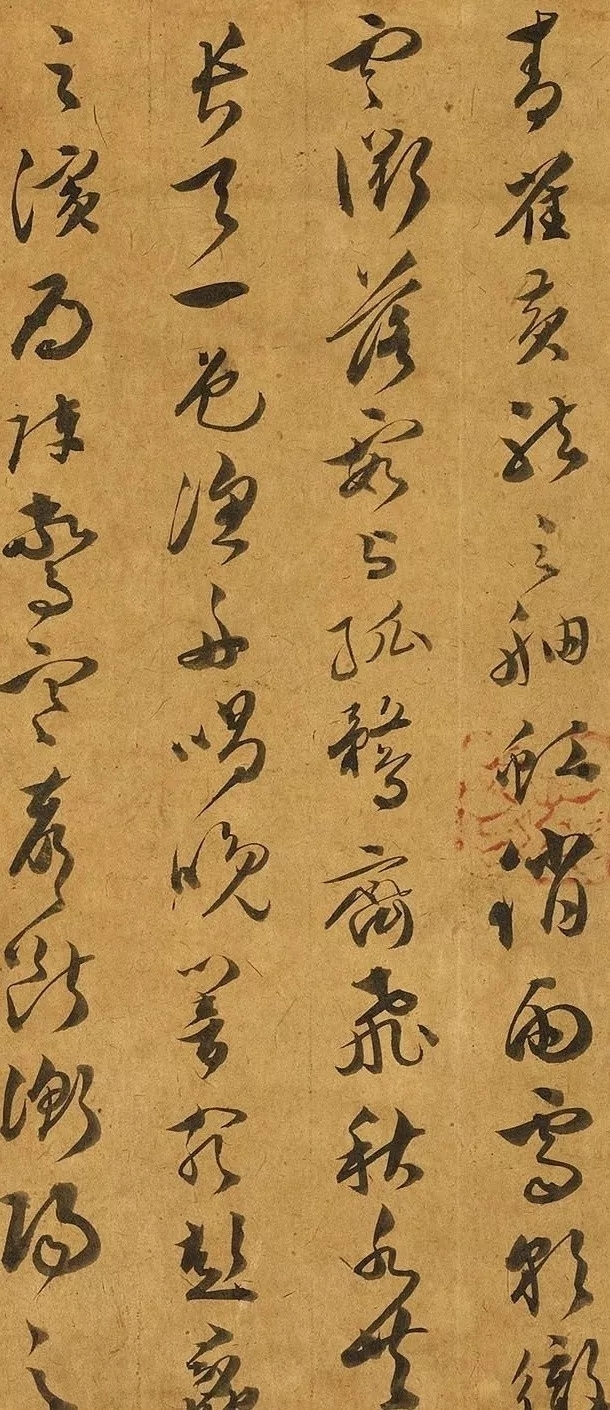 青雀黃龍之舳虹消雨霽彩徹
雲衢落霞與孤鶩齊飛秋水共
長天一色漁舟唱晚響窮彭蠡
之濱鴈陣驚寒聲斷衡陽之